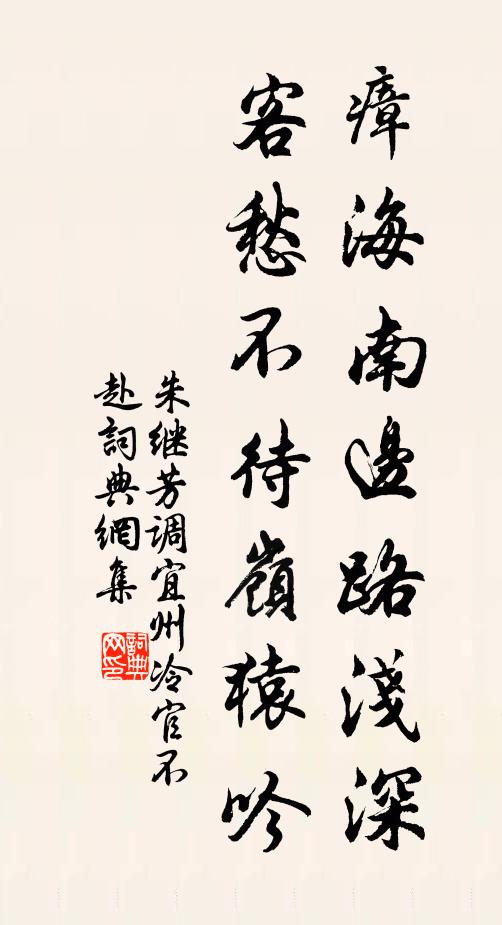 瘴海南邊路淺深
客愁不待嶺猿吟
朱继芳调宜州冷官不
赴詞典網集
詞典网印